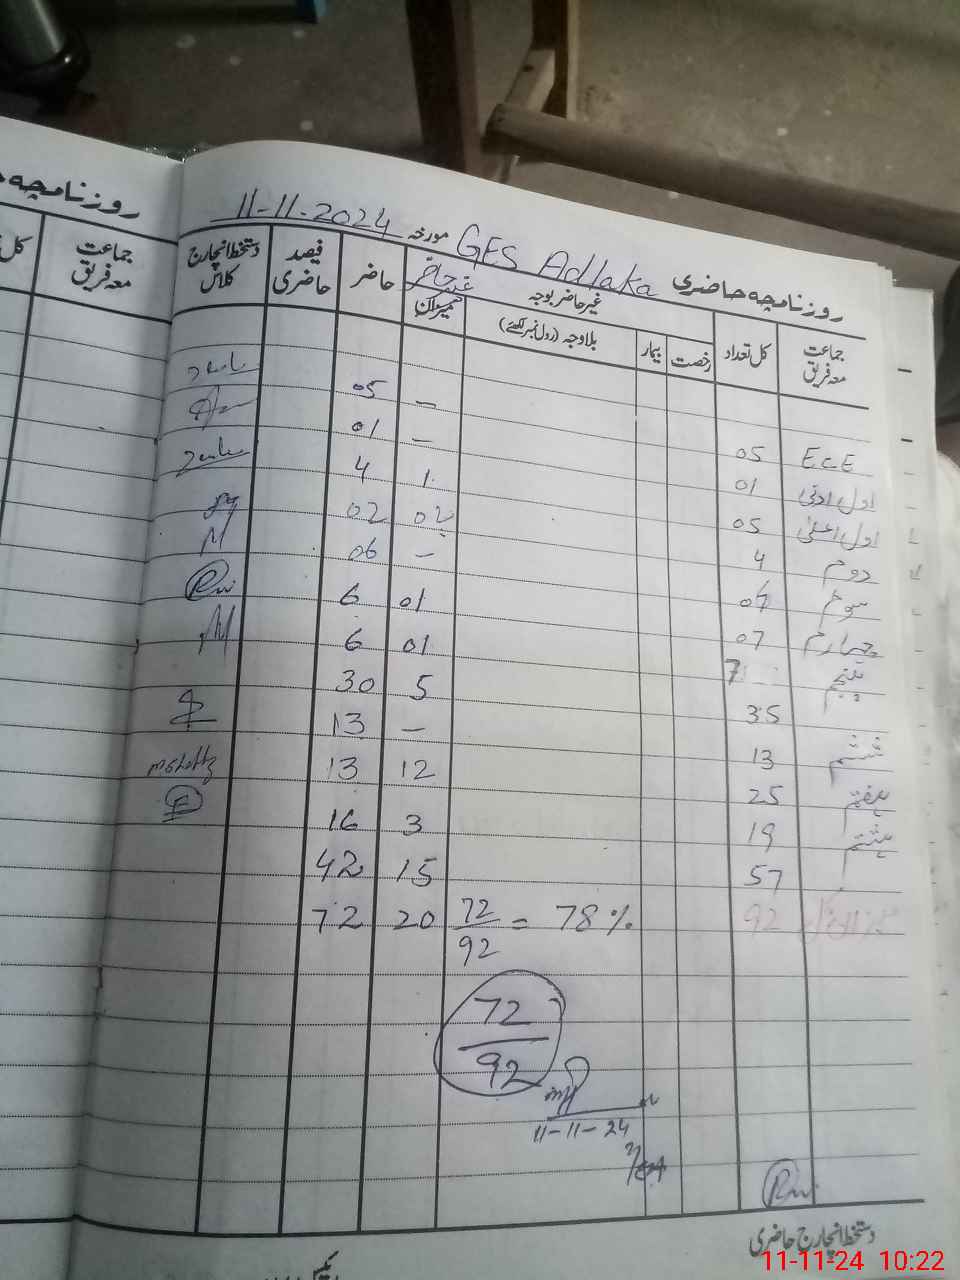 روزنامچہ حاضری GES Adlaka مورخہ 11-11-2024
جماعت معہ فریق کل تعداد غیر حاضر بوجہ غیر حاضر حاضر فیصد حاضری دستخط انچارج کلاس
رخصت بیمار بلاوجہ (رول نمبر لکھئے) میزان
ECE 05 – 05
اول ادنیٰ 01 – 01
اول اعلیٰ 05 1 4
دوم 4 02 02
سوم 06 – 06
چہارم 07 01 6
پنجم 7 01 6
35 5 30
ششم 13 – 13
ہفتم 25 12 13
ہشتم 19 3 16
57 15 42
92 72/92 = 78% 20 72
72
92
11-11-24
دستخط انچارج حاضری
روزنامچہ
جماعت معہ فریق کل
11-11-24 10:22